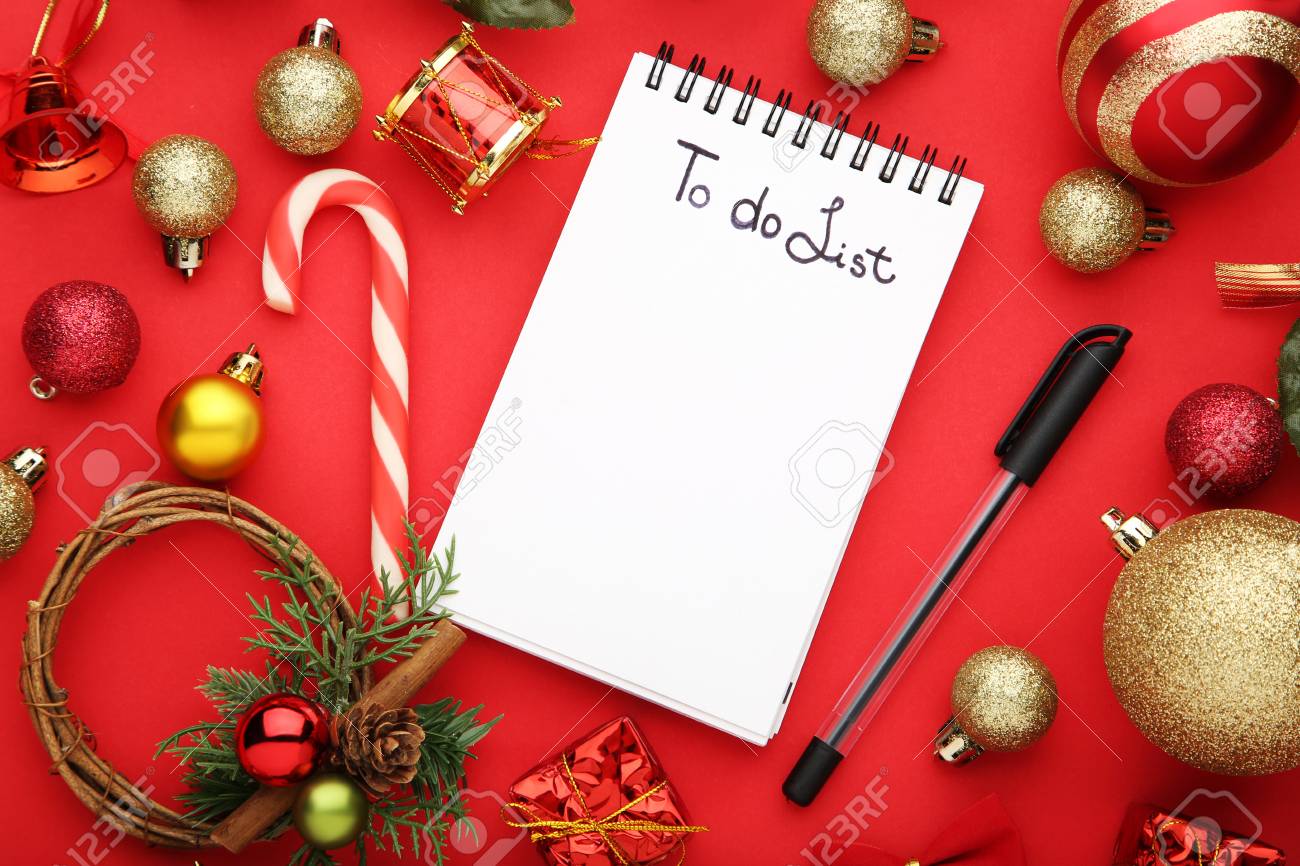 To do List
123RF
123RF
123RF
123RF
123RF
123RF
123RF
123RF
123RF
123RF